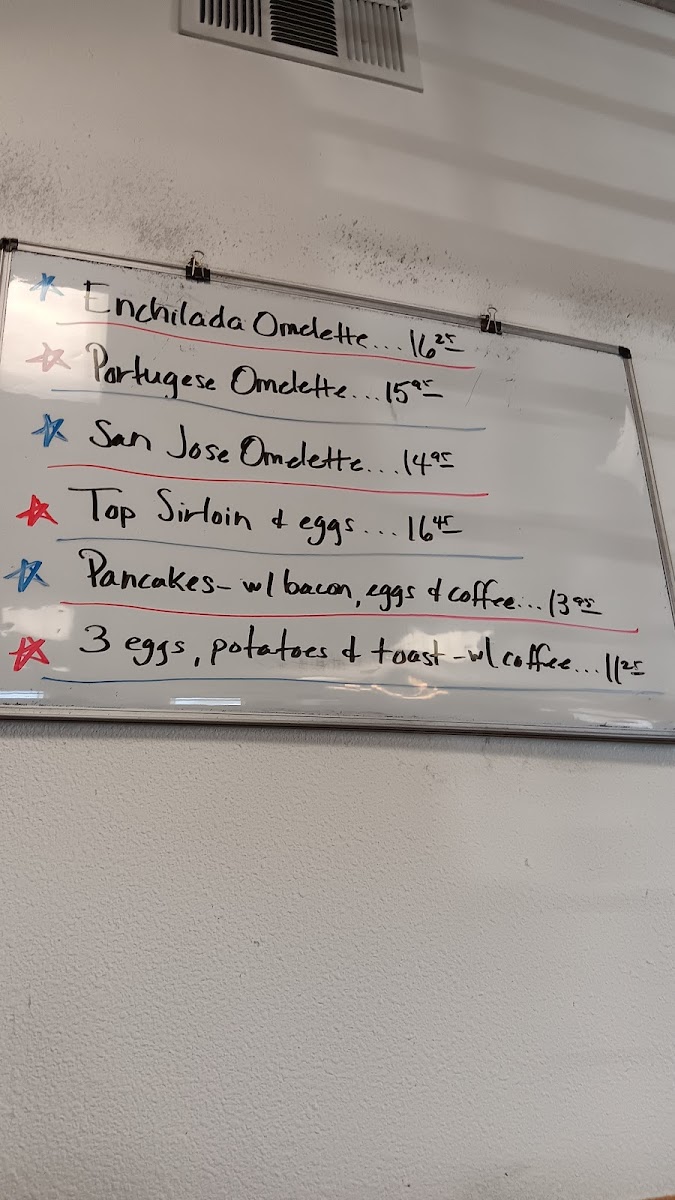 Enchilada Omelette...16.25
Portugese Omelette...15.95
San Jose Omelette...14.95
Top Sirloin & eggs...16.45
Pancakes- w/ bacon, eggs & coffee...13.95
3 eggs, potatoes & toast -w/ coffee...11.25